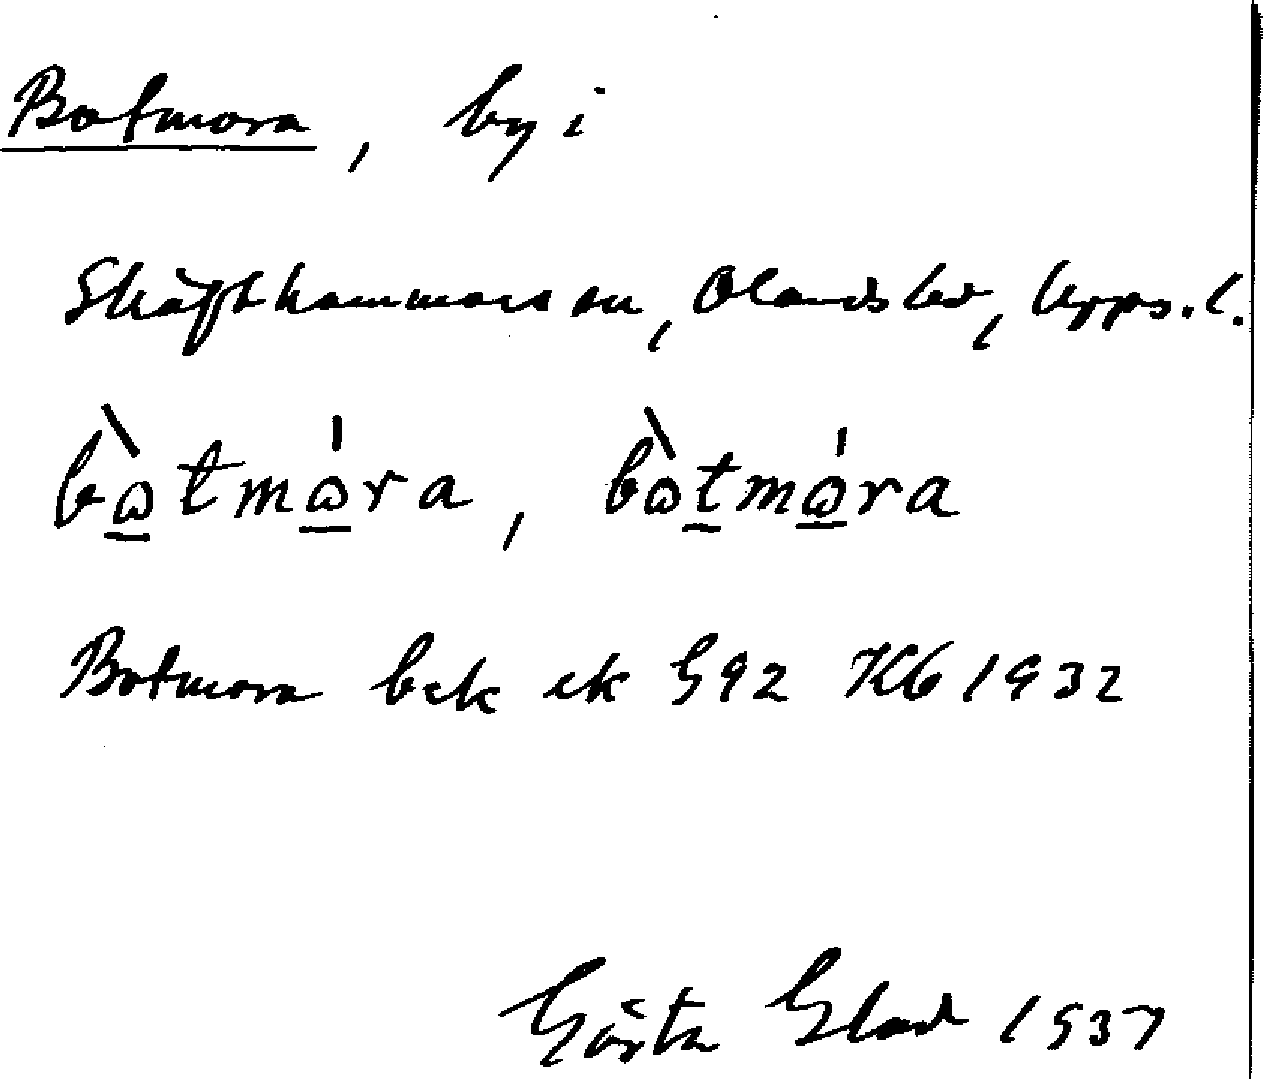 Botmora, by i
Skäfthammars sn, Olands hd, Upps. l.
bὼ̱tmώ̱ra, bὼṯmώ̱ra
Botmora bek ek G92 Kb 1932
Gösta Glad 1937